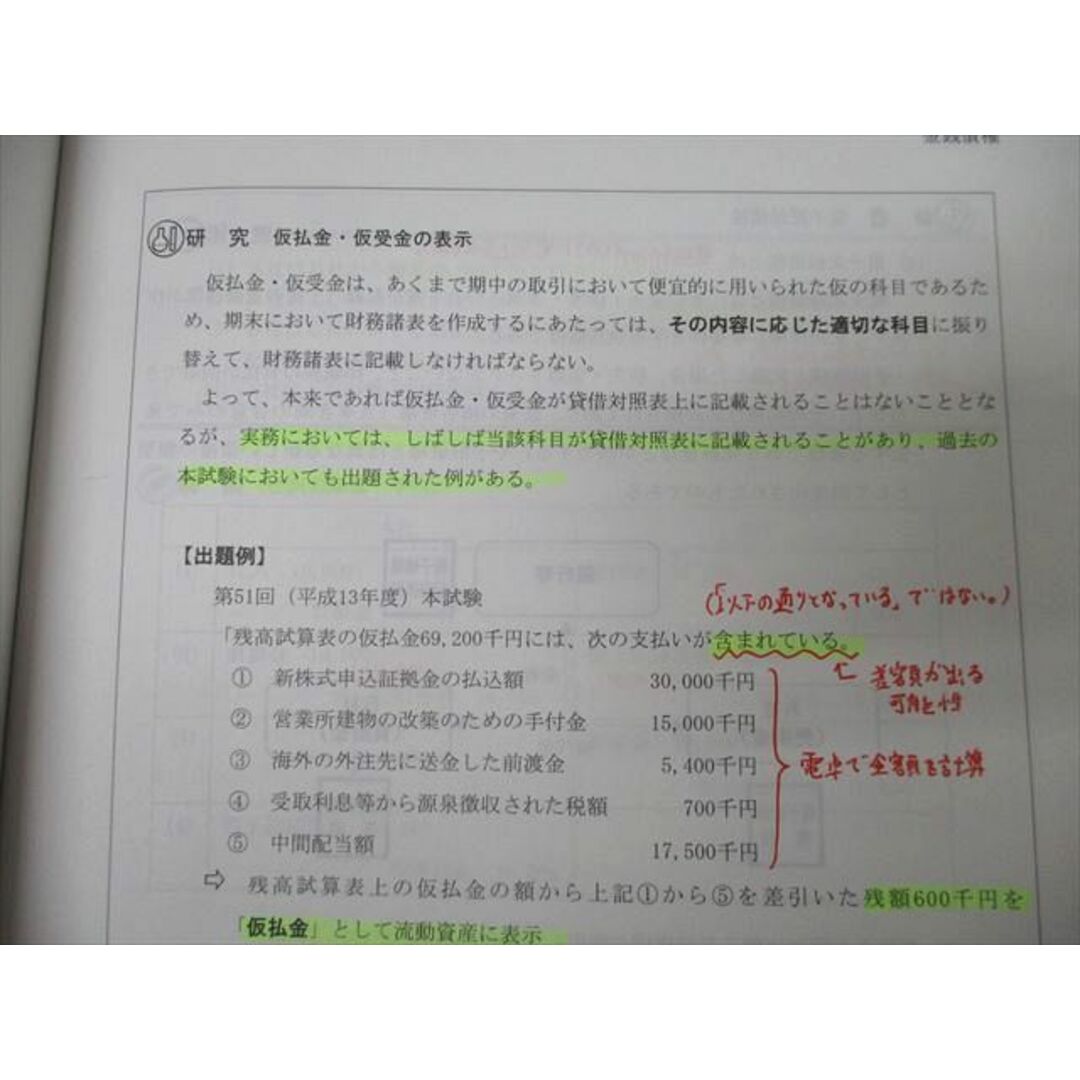 研 究 仮払金・仮受金の表示
仮払金・仮受金は、あくまで期中の取引において便宜的に用いられた仮の科目であるた
め、期末において財務諸表を作成するにあたっては、その内容に応じた適切な科目に振り
替えて、財務諸表に記載しなければならない。
よって、本来であれば仮払金・仮受金が貸借対照表上に記載されることはないこととな
るが、実務においては、しばしば当該科目が貸借対照表に記載されることがあり、過去の
本試験においても出題された例がある。
【出題例】
第51回（平成13年度）本試験
（「以下の通りとなっている」ではない。）
「残高試算表の仮払金69,200千円には、次の支払いが含まれている。
① 新株式申込証拠金の払込額 30,000千円
← 差額が出る
可能性
② 営業所建物の改築のための手付金 15,000千円
③ 海外の外注先に送金した前渡金 5,400千円
電卓で全額を計算
④ 受取利息等から源泉徴収された税額 700千円
⑤ 中間配当額 17,500千円
⇨ 残高試算表上の仮払金の額から上記①から⑤を差引いた残額600千円を
「仮払金」として流動資産に表示